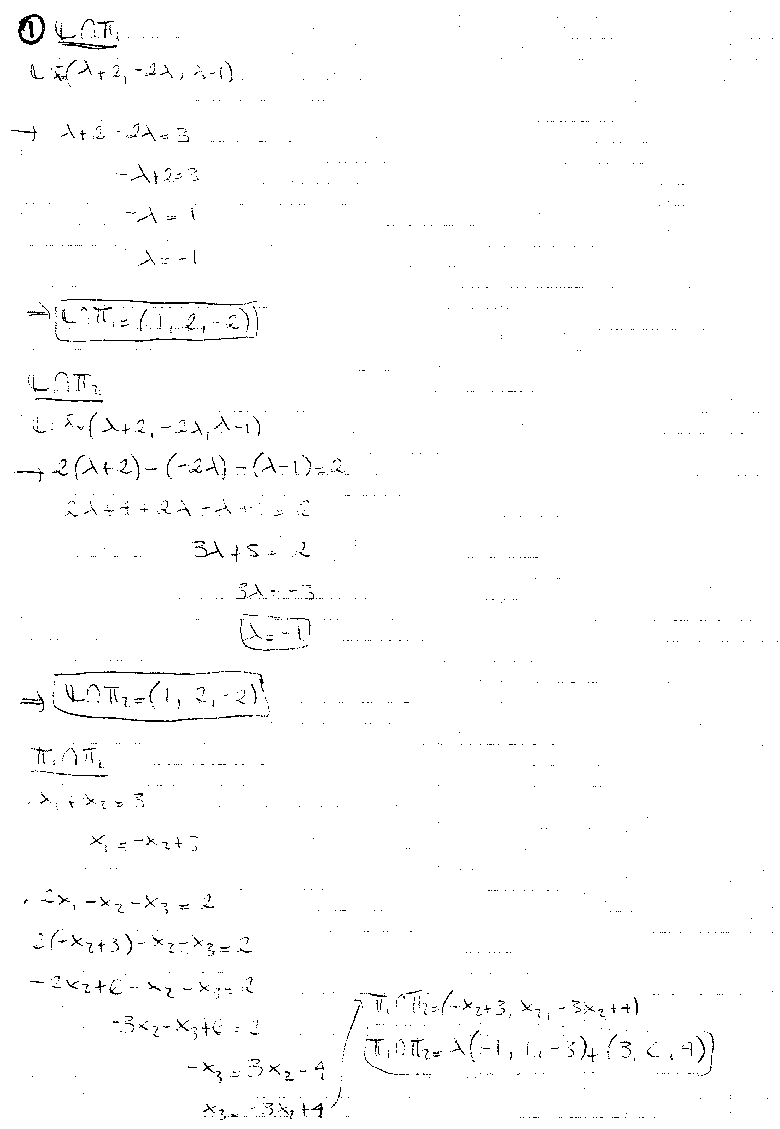 ① 𝕃∩π₁
𝕃: x̄=(λ+2, -2λ, λ-1)
→ λ+2-2λ=3
-λ+2=3
-λ=1
λ=-1
⇒ 𝕃∩π₁=(1, 2, -2)
𝕃∩π₂
𝕃: x̄=(λ+2, -2λ, λ-1)
→ 2(λ+2)-(-2λ)-(λ-1)=2
2λ+4+2λ-λ+1=2
3λ+5=2
3λ=-3
λ=-1
⇒ 𝕃∩π₂=(1, 2, -2)
π₁∩π₂
. x₁+x₂=3
x₁=-x₂+3
. 2x₁-x₂-x₃=2
2(-x₂+3)-x₂-x₃=2
-2x₂+6-x₂-x₃=2
-3x₂-x₃+6=2
-x₃=3x₂-4
x₃=-3x₂+4
π₁∩π₂=(-x₂+3, x₂, -3x₂+4)
π₁∩π₂=λ(-1, 1, -3)+(3, 0, 4)